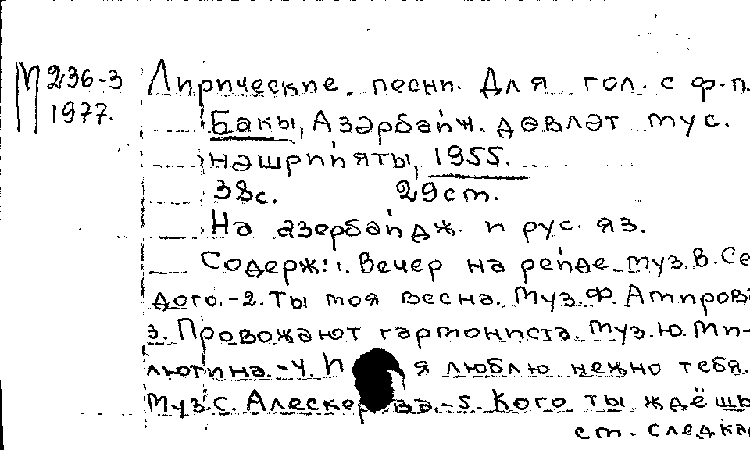 М 236-3 Лирические песни. Для гол. с ф-п.
1977. Бакы, Азәрбајҹ. дөвләт мус.
нәшријјаты, 1955.
38с. 29см.
На азербайдж. и рус. яз.
Содерж: 1. Вечер на рейде. Муз. В. Се-
дого.-2. Ты моя весна. Муз. Ф. Амирова
3. Провожают гармониста. Муз. Ю. Ми-
лютина.-4. И я люблю нежно тебя.
Муз С. Алескерова.-5. Кого ты ждёшь
см. след. ка